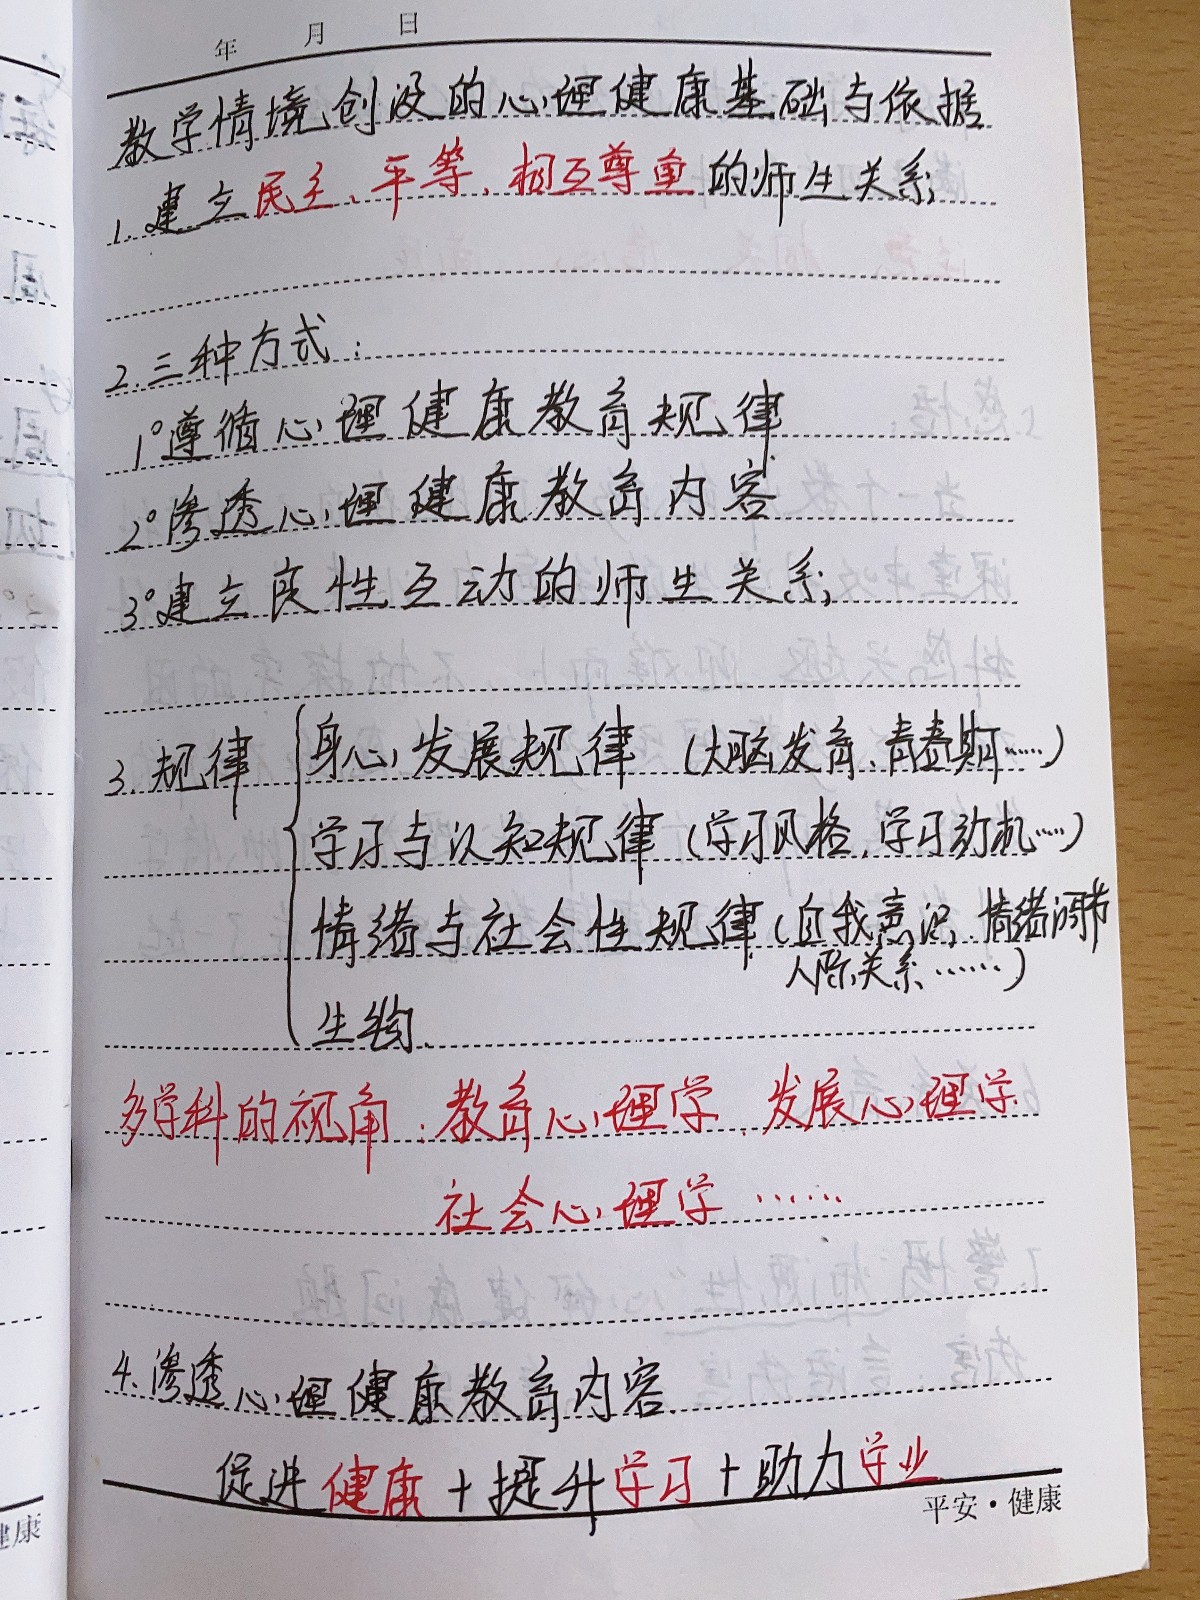 年 月 日
教学情境创设的心理健康基础与依据
1.建立民主、平等、相互尊重的师生关系
2.三种方式:
1°遵循心理健康教育规律
2°渗透心理健康教育内容
3°建立良性互动的师生关系
3.规律 身心发展规律 (大脑发育、青春期……)
学习与认知规律 (学习风格、学习动机……)
情绪与社会性规律 (自我意识、情绪调节
人际关系……)
生物
多学科的视角:教育心理学、发展心理学
社会心理学……
4.渗透心理健康教育内容
促进健康+提升学习+助力学业
平安·健康